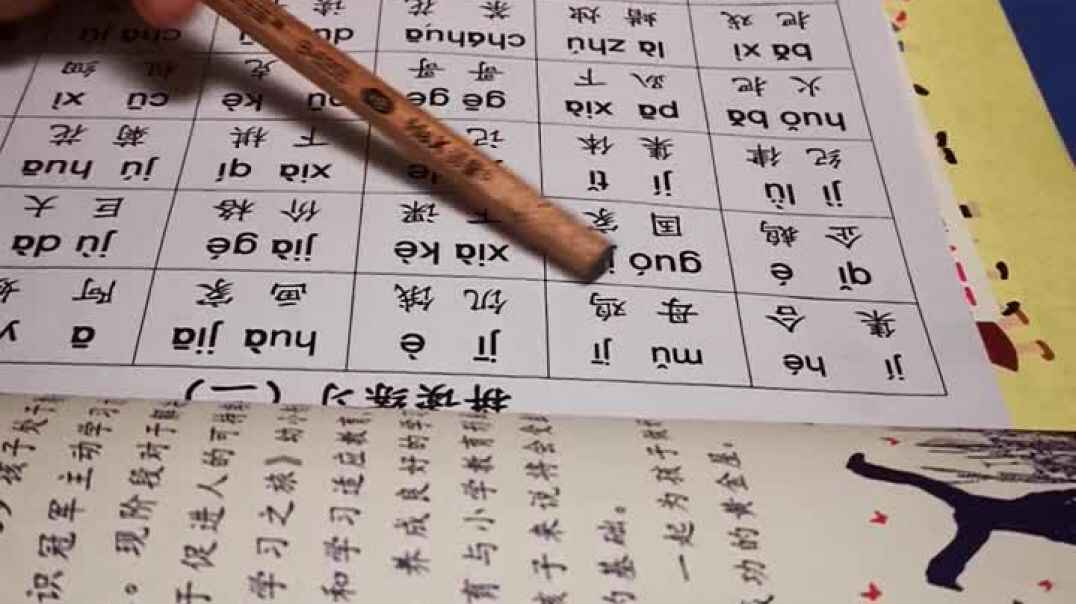 拼读练习（一）
jí hé mǔ jī jī è huà jiā ā
集合 母鸡 饥饿 画家 阿
qǐ é guó xià kè jià gé jù dà
企鹅 国家 下课 价格 巨大
jì lǜ jí tǐ xià qí jú huā
纪律 集体 记 下棋 菊花
huǒ bǎ pā xià gē ge kè cū xì
火把 趴下 哥哥 克 粗细
bǎ xì là zhú cháhuā dú chā jù
把戏 蜡烛 茶花 读
孩子
识冠军 主动学习
。现阶段对于
于促进人的可持
学习之旅》幼小
和学习适应教育
养成良好的
育与小学教育
孩子来说将会
的基础。
一起为孩子
功的黄金屋。